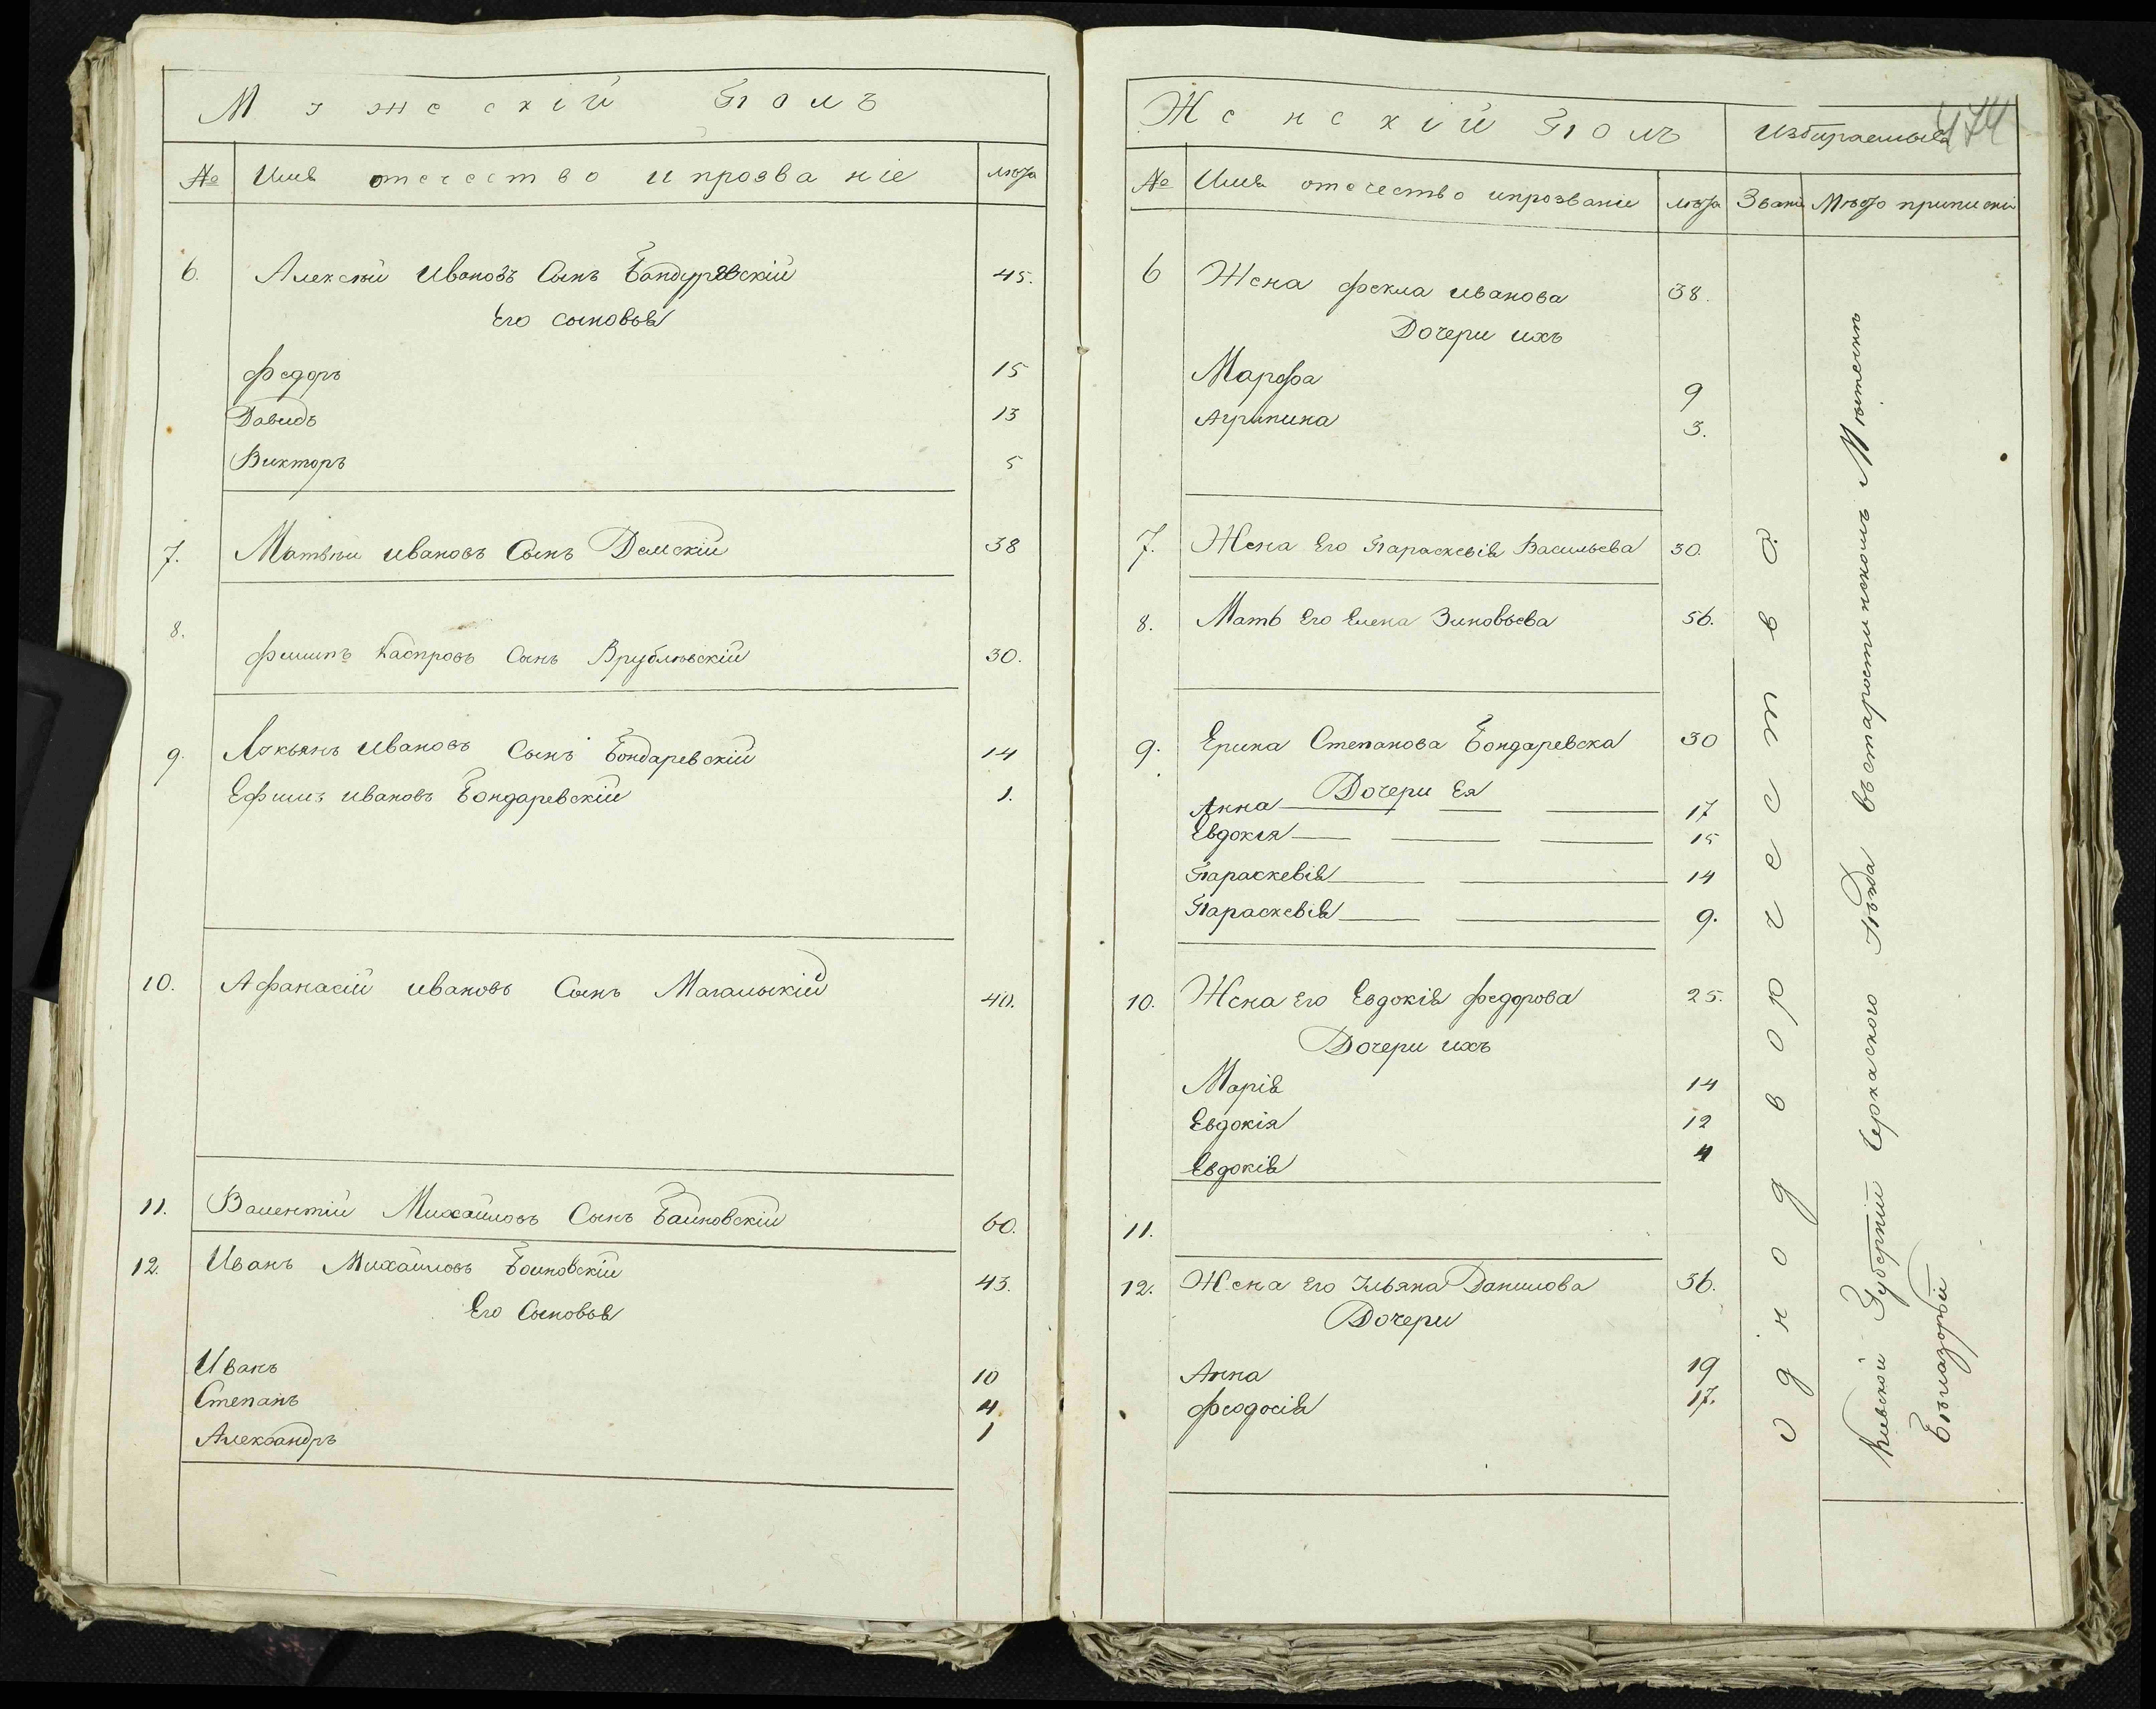 Мужескій Полъ
№ Имя отечество и прозваніе лѣта
6. Алексѣй Ивановъ Сынъ Бандуревскій 45.
Его сыновья
Федоръ 15
Давидъ 13
Викторъ 5
7. Матвѣй Ивановъ Сынъ Демскій 38
8.
Филипъ Каспровъ Сынъ Врублѣвскій 30.
9. Лукьянъ Ивановъ Сынъ Бондаревскій 14
Ефимъ Ивановъ Бондаревскій 1.
10. Афанасій Ивановъ Сынъ Магальскій 40.
11. Валентій Михайловъ Сынъ Байновскій 60.
12. Иванъ Михайловъ Боиновскій 43.
Его Сыновья
Иванъ 10
Степанъ 4
Александръ 1
Женскій Полъ Избираемыя 474
№ Имя отечество ипрозваніе лѣта Званія Мѣсто приписки
6 Жена Фекла Иванова 38.
Дочери ихъ
Марфа 9
Агрипина 3.
7. Жена Его Параскевія Васильева 30.
8. Мать Его Елена Зиновьева 56.
9. Ерина Степанова Бондаревска 30
Дочери Ея
Анна 17
Евдокія 15
Параскевія 14
Параскевія 9.
10. Жена Его Евдокія Федорова 25.
Дочери ихъ
Марія 14
Евдокія 12
Евдокія 4
11.
12. Жена Его Ульяна Данилова 36.
Дочери
Анна 19
Феодосія 17.
Однодворчество.
Кіевской Губерніи Черкаского Уѣзда въ старостинскомъ Мѣстечкѣ
Бѣлазорьи